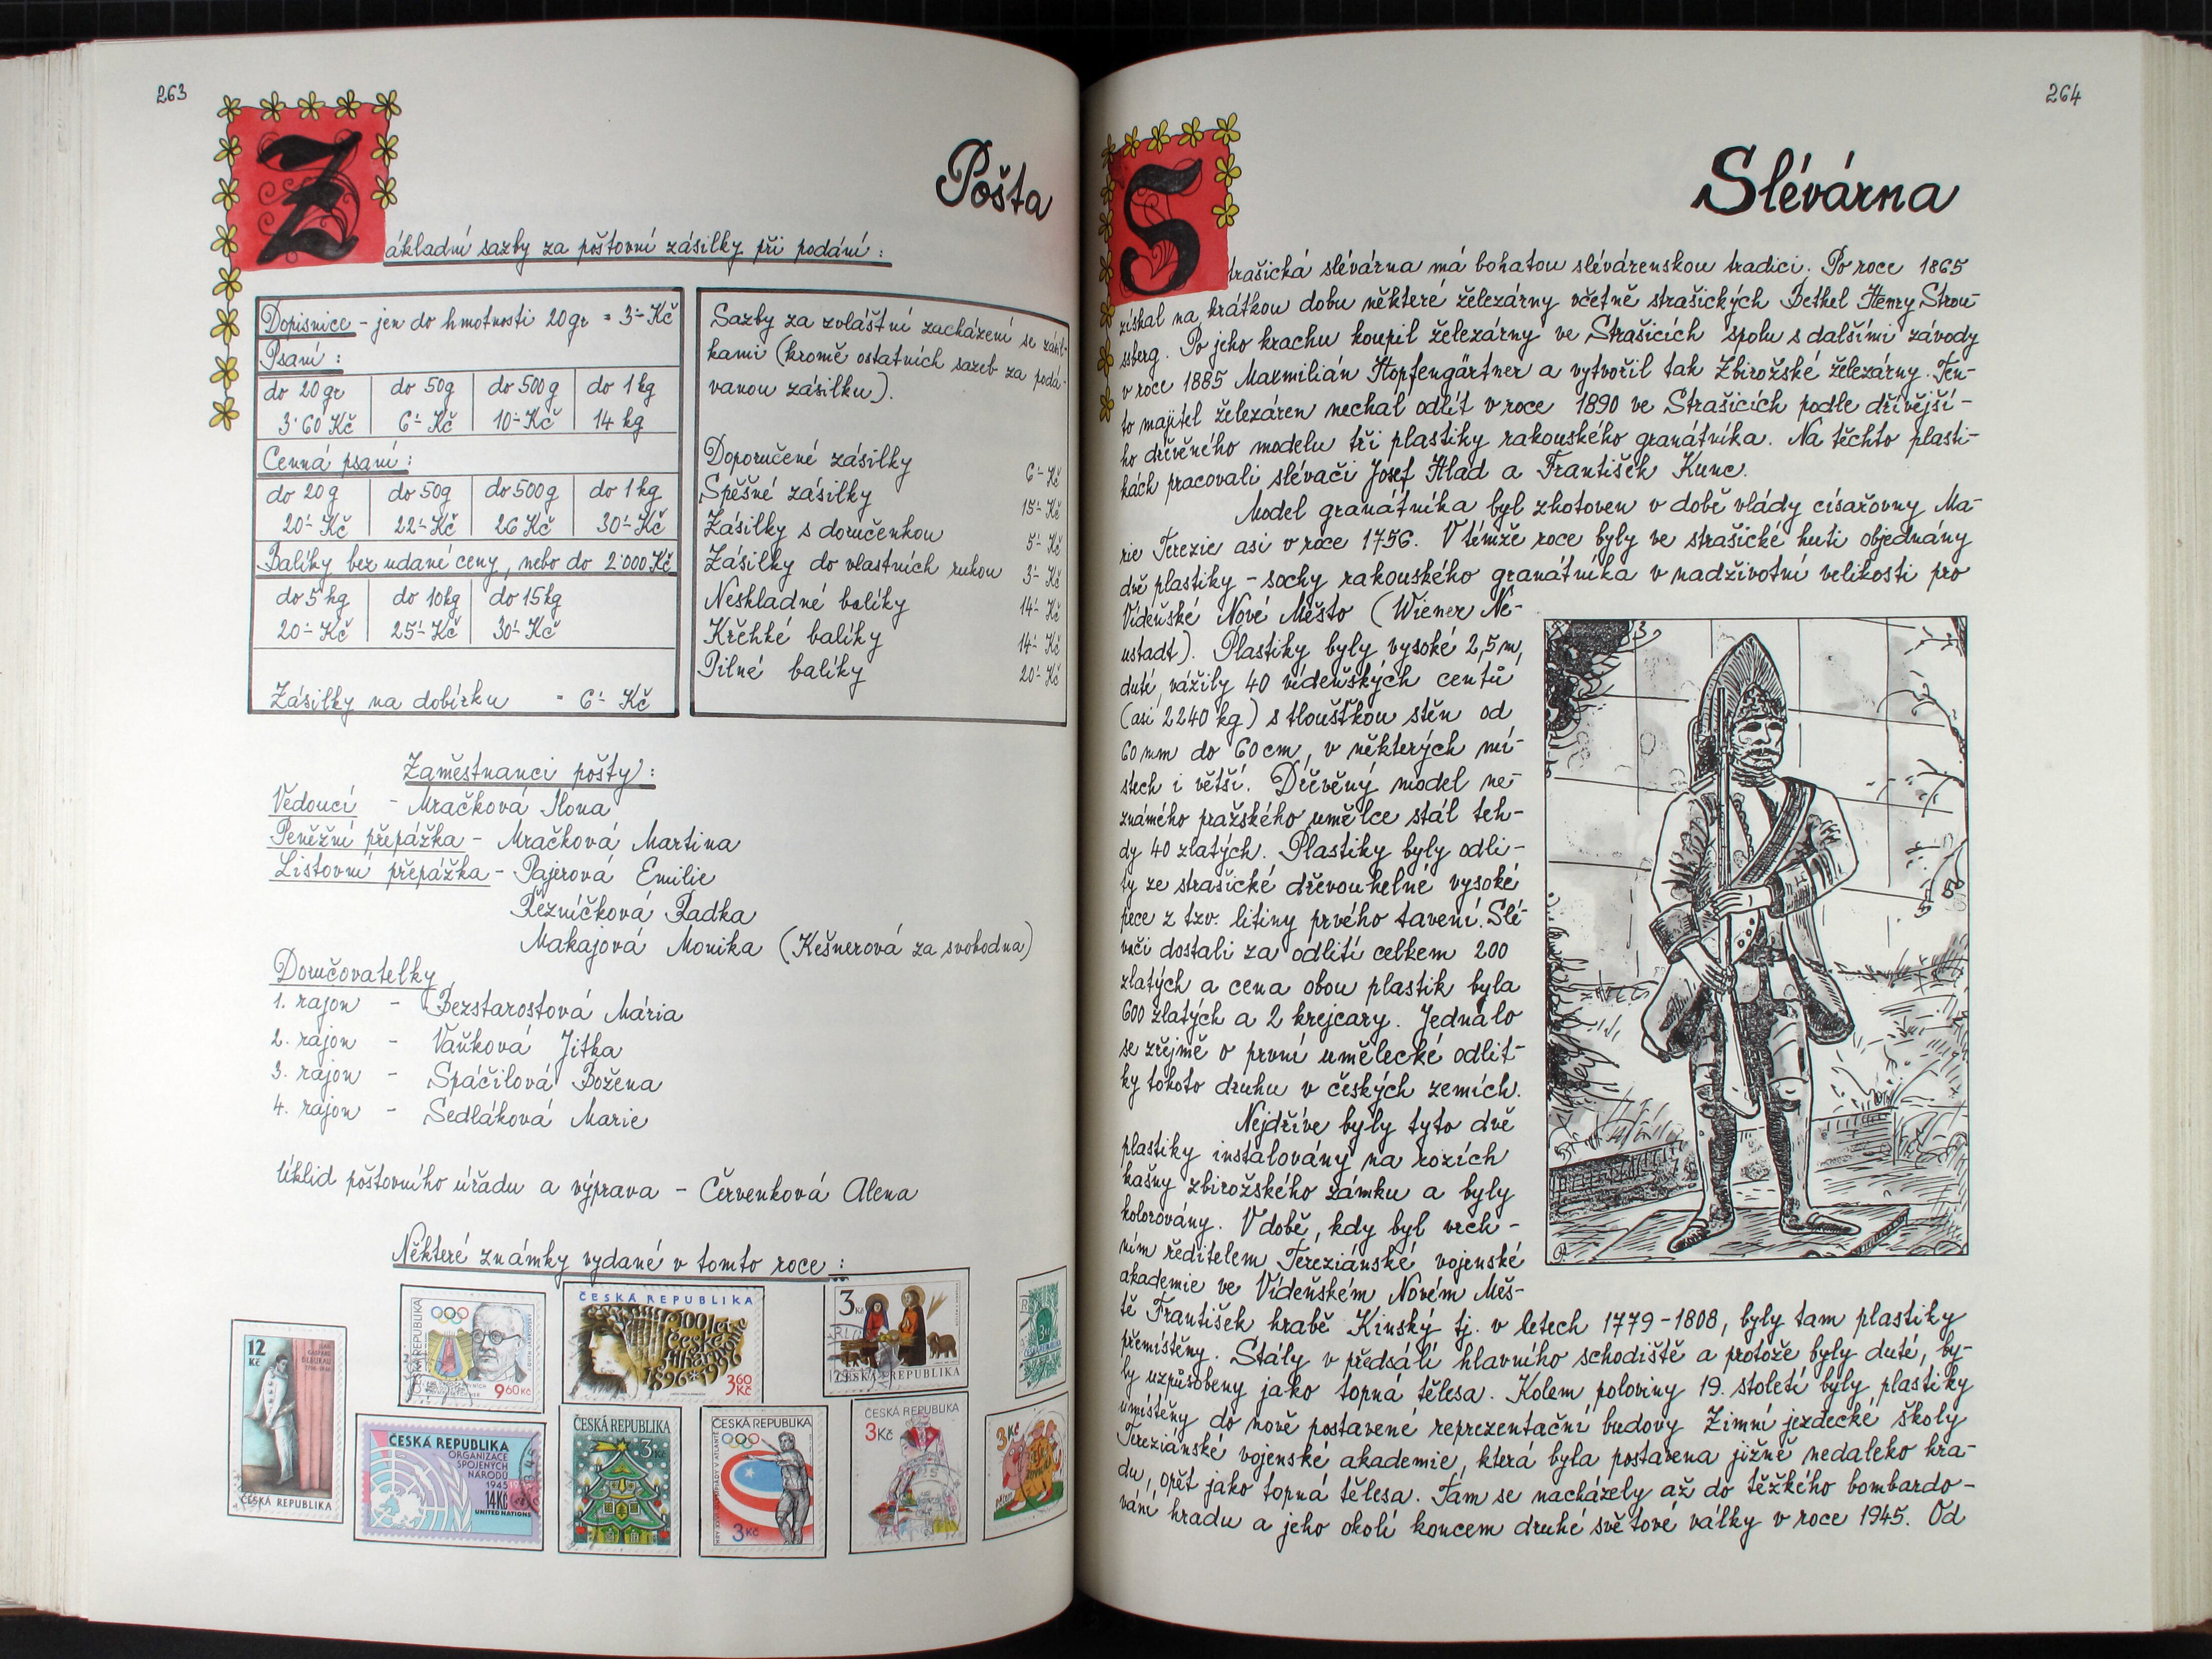 263
Pošta
Základní sazby za poštovní zásilky při podání:
Dopisnice - jen do hmotnosti 20gr = 3'- Kč
Psaní:
do 20gr do 50g do 500g do 1kg
3'60 Kč 6'- Kč 10'- Kč 14 kg
Cenná psaní:
do 20g do 50g do 500g do 1kg
20'- Kč 22'- Kč 26 Kč 30'- Kč
Balíky bez udané ceny, nebo do 2'000 Kč
do 5kg do 10kg do 15kg
20'- Kč 25'- Kč 30'- Kč
Zásilky na dobírku = 6'- Kč
Sazby za zvláštní zacházení se zásil-
kami (kromě ostatních sazeb za podá-
vanou zásilku).
Doporučené zásilky 6'- Kč
Spěšné zásilky 15'- Kč
Zásilky s doručenkou 5'- Kč
Zásilky do vlastních rukou 3'- Kč
Neskladné balíky 14'- Kč
Křehké balíky 14'- Kč
Pilné balíky 20'- Kč
Zaměstnanci pošty:
Vedoucí - Mračková Ilona
Peněžní přepážka - Mračková Martina
Listovní přepážka - Pajerová Emilie
Řezníčková Radka
Makajová Monika (Kešnerová za svobodna)
Doručovatelky
1. rajon - Bezstarostová Mária
2. rajon - Vaňková Jitka
3. rajon - Spáčilová Božena
4. rajon - Sedláková Marie
Úklid poštovního úřadu a výprava - Červenková Alena
Některé známky vydané v tomto roce:
12 Kč
ČESKÁ REPUBLIKA
ČESKÁ REPUBLIKA
9 60 Kč
ČESKÁ REPUBLIKA
100 let České filharmonie
1896 * 1996
3 60 Kč
3 Kč
ČESKÁ REPUBLIKA
ČESKÁ REPUBLIKA
ORGANIZACE
SPOJENÝCH
NÁRODŮ
1945
14 Kč
UNITED NATIONS
ČESKÁ REPUBLIKA
3 Kč
ČESKÁ REPUBLIKA
3 Kč
ČESKÁ REPUBLIKA
3 Kč
3 Kč
264
Slévárna
Strašická slévárna má bohatou slévárenskou tradici. Po roce 1865
získal na krátkou dobu některé železárny včetně strašických Bethel Henry Strou-
ssberg. Po jeho krachu koupil železárny ve Strašicích spolu s dalšími závody
v roce 1885 Maxmilián Hopfengärtner a vytvořil tak Zbirožské železárny. Ten-
to majitel železáren nechal odlít v roce 1890 ve Strašicích podle dřívější-
ho dřevěného modelu tři plastiky rakouského granátníka. Na těchto plasti-
kách pracovali slévači Josef Hlad a František Kunc.
Model granátníka byl zhotoven v době vlády císařovny Ma-
rie Terezie asi v roce 1756. V témže roce byly ve strašické huti objednány
dvě plastiky - sochy rakouského granátníka v nadživotní velikosti pro
Vídeňské Nové Město (Wiener Ne-
ustadt). Plastiky byly vysoké 2,5 m,
duté, vážily 40 vídeňských centů
(asi 2240 kg) s tloušťkou stěn od
60 mm do 60 cm, v některých mí-
stech i větší. Dřevěný model ne-
známého pražského umělce stál teh-
dy 40 zlatých. Plastiky byly odli-
ty ze strašické dřevouhelné vysoké
pece z tzv. litiny prvého tavení. Slé-
vači dostali za odlití celkem 200
zlatých a cena obou plastik byla
600 zlatých a 2 krejcary. Jednalo
se zřejmě o první umělecké odlit-
ky tohoto druhu v českých zemích.
Nejdříve byly tyto dvě
plastiky instalovány na rozích
kašny zbirožského zámku a byly
kolorovány. V době, kdy byl vrch-
ním ředitelem Tereziánské vojenské
akademie ve Vídeňském Novém Měs-
tě František hrabě Kinský tj. v letech 1779-1808, byly tam plastiky
přemístěny. Stály v předsálí hlavního schodiště a protože byly duté, by-
ly uzpůsobeny jako topná tělesa. Kolem poloviny 19. století byly plastiky
umístěny do nově postavené reprezentační budovy Zimní jezdecké školy
Tereziánské vojenské akademie, která byla postavena jižně nedaleko hra-
du, opět jako topná tělesa. Tam se nacházely až do těžkého bombardo-
vání hradu a jeho okolí koncem druhé světové války v roce 1945. Od